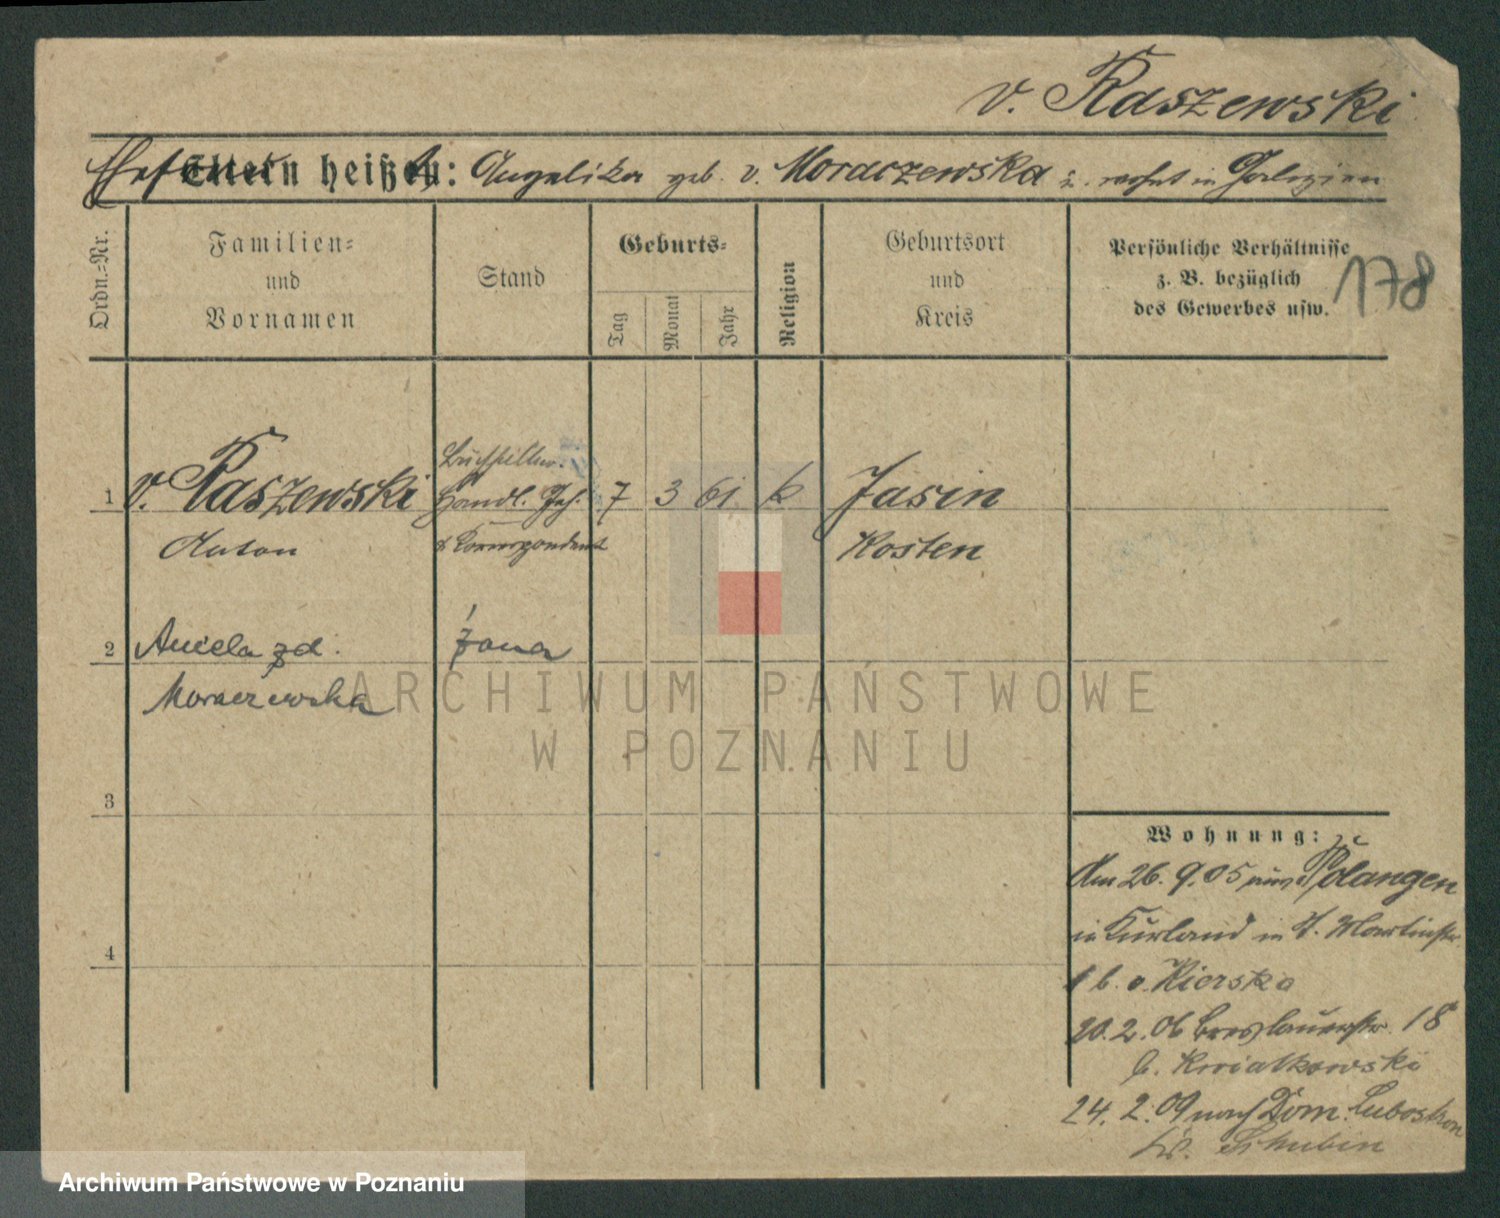 v. Raszewski
Eltern heißen: Angelika geb. v. Moraczewska u. wohnt in Galizien
Ordn.=Nr.
Familien=
und
Vornamen
Stand
Geburts=
Tag
Monat
Jahr
Religion
Geburtsort
und
Kreis
Persönliche Verhältnisse
z. B. bezüglich
des Gewerbes usw.
178
1 v. Raszewski Handl. Geh. 7 3 61 k Jasin
Anton & Korrespondent Kosten
2 Aniela zd. żona
Moraczewska
3
4
Wohnung:
Am 26. 9. 05 aus Polangen
in Kurland in St. Martinstr.
1 b. v. Kierska
20. 2. 06 Breslauerstr. 18
b. Kwiatkowski
24. 2. 09 nach Dom. Luboskon
Kr. Schubin
ARCHIWUM PAŃSTWOWE
W POZNANIU
Archiwum Państwowe w Poznaniu